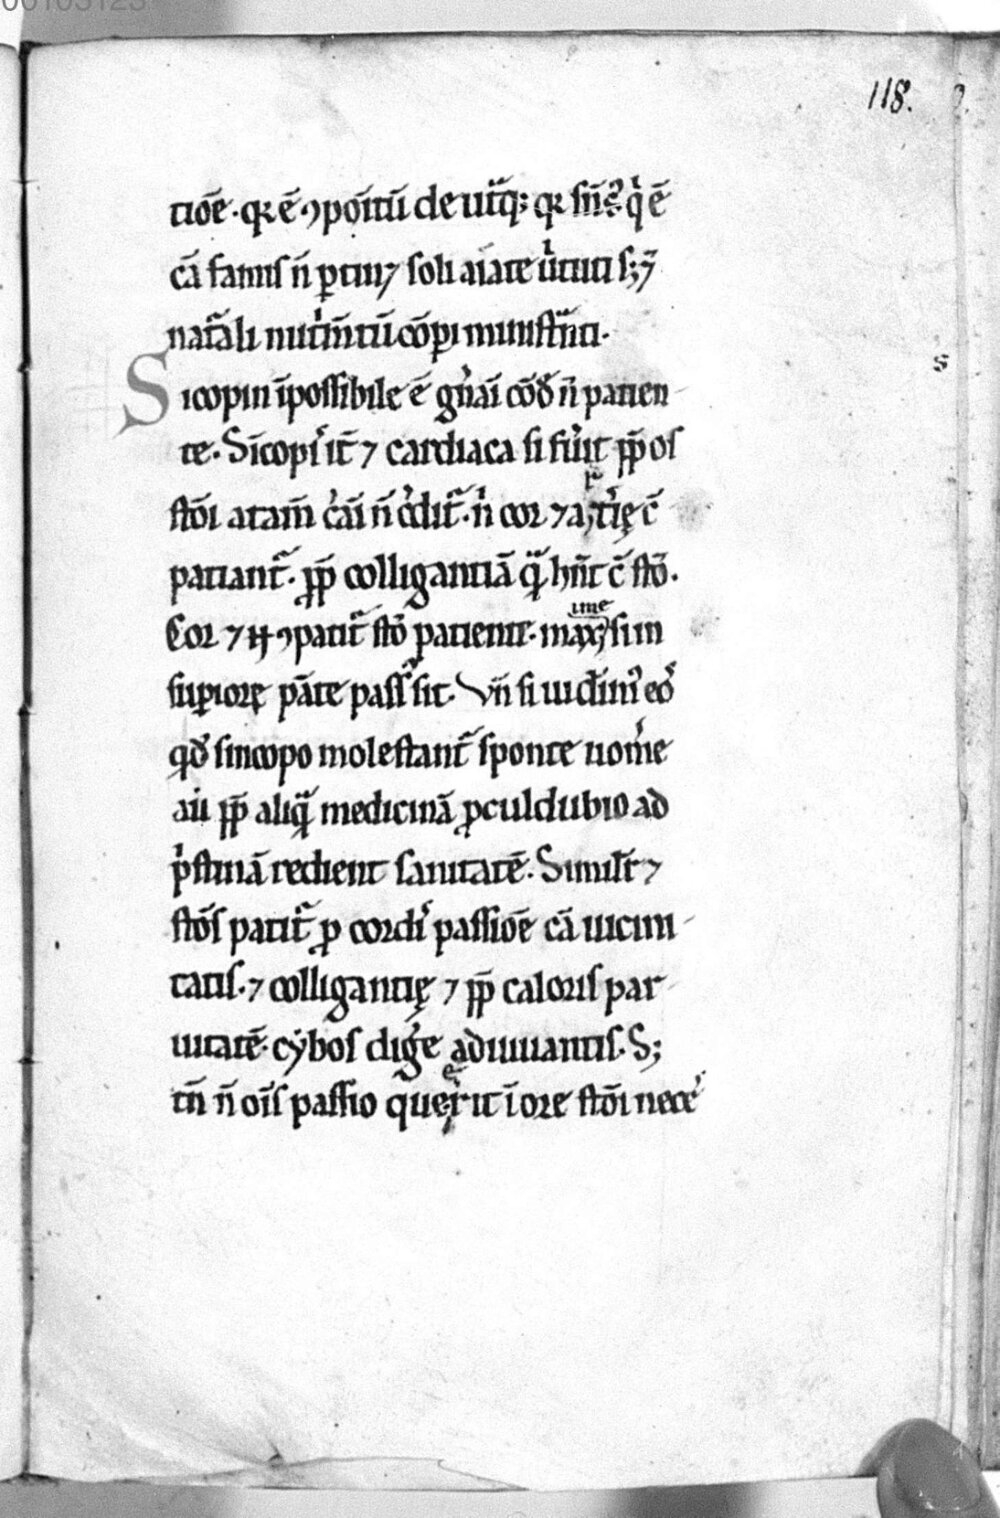 118.
tiōe · qr ē ꝯpoītū de ut̄q; qr q̇ ē
cā famıſ n̄ ꝑtin⁊ ſoli aīate u̇tuti ſ; ⁊
nat̄ali nut̍im̄tū cōꝑi miniſt̄nti ·
Sicopin īpoſſibile ē gn̄āı cōđ n̄ patien
te · Sīcopiſ it̄ ⁊ cardiaca ſi fu̍it ꝓp̄ oſ
ſtōı n̄ · n̍ cor ⁊ c̄
patiant᷑ · ꝓp̄ colligantiā q̄ hn̄t c̄ ſtō ·
Cor ⁊ ꝯpatit᷑ ſtō patienti · maxime ſi in
ſuꝑiorę pāte paſſ ſit · Vn̄ ſi uidim᷒ eoſ
qđ ſincopo moleſtant᷑ ſponte uom̍e
aū ꝓp̄ aliq̄ medicinā ꝓculdubio ad
p̍ſtinā redient ſanitatē · Simılit̄ ⁊
ſtōſ patit᷑ ꝓ cordiſ paſſiōe cā uicini
tatiſ · ⁊ colligantię ⁊ ꝓp̄ caloriſ par
uitatē · cẏboſ dig̍e adiuuantiſ · S;
tn̄ n̄ oīſ paſſio querit ī ore ſtōı nece
s